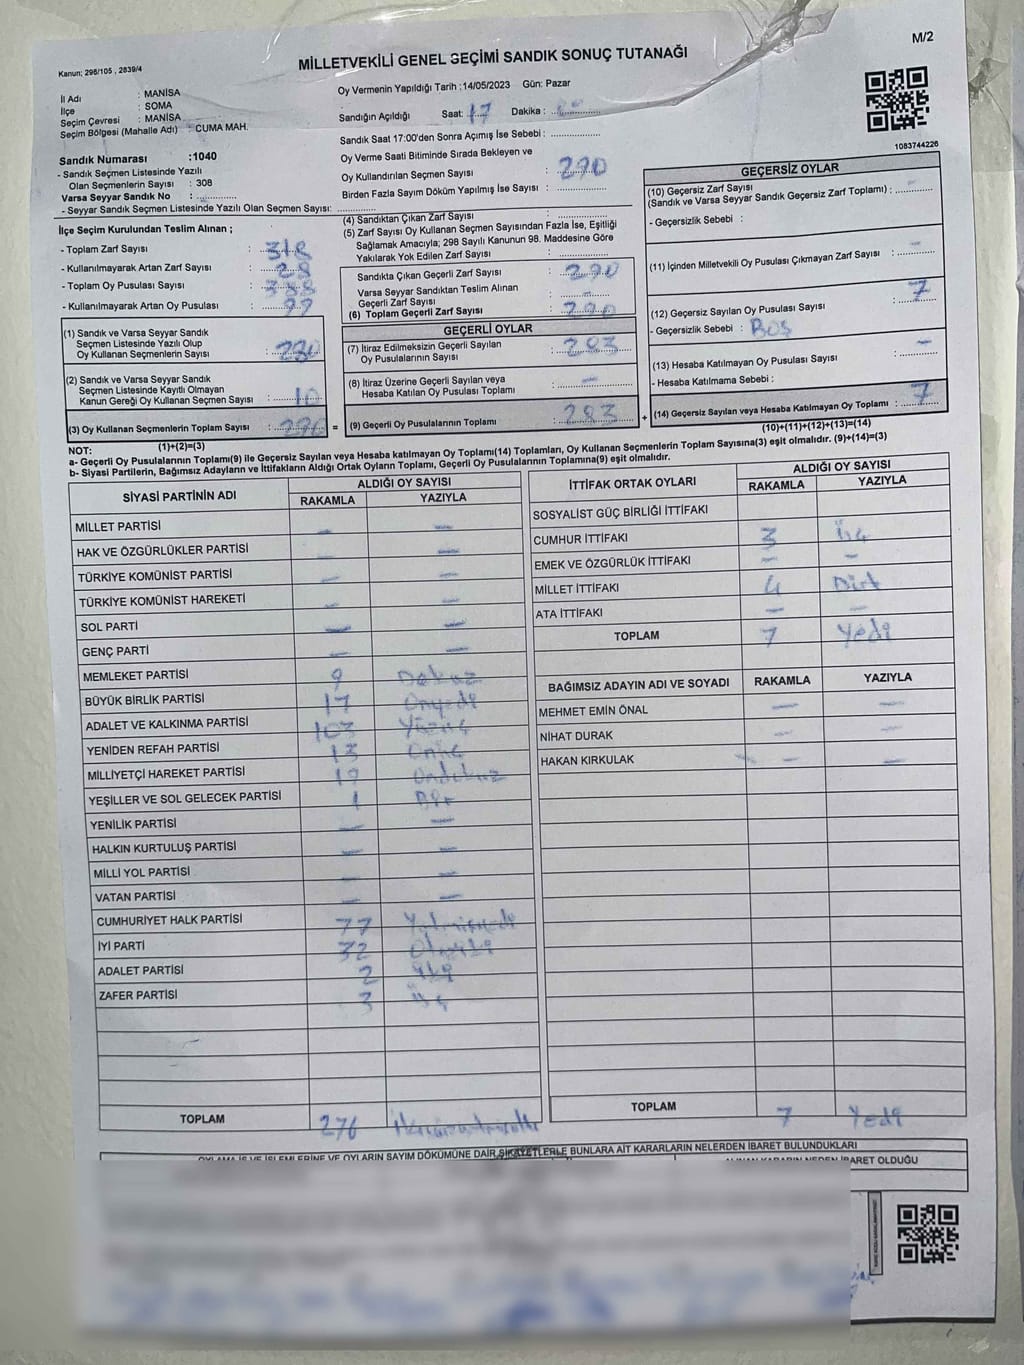 M/2
MİLLETVEKİLİ GENEL SEÇİMİ SANDIK SONUÇ TUTANAĞI
Kanun; 298/105 , 2839/4
İl Adı : MANİSA
İlçe : SOMA
Seçim Çevresi : MANİSA
Seçim Bölgesi (Mahalle Adı) : CUMA MAH.
Oy Vermenin Yapıldığı Tarih :14/05/2023 Gün: Pazar
Sandığın Açıldığı Saat: 17 Dakika :
Sandık Saat 17:00'den Sonra Açımış İse Sebebi :
Sandık Numarası :1040
- Sandık Seçmen Listesinde Yazılı
Olan Seçmenlerin Sayısı : 308
Varsa Seyyar Sandık No :
- Seyyar Sandık Seçmen Listesinde Yazılı Olan Seçmen Sayısı:
Oy Verme Saati Bitiminde Sırada Bekleyen ve
Oy Kullandırılan Seçmen Sayısı : 290
Birden Fazla Sayım Döküm Yapılmış İse Sayısı :
1083744226
İlçe Seçim Kurulundan Teslim Alınan ;
- Toplam Zarf Sayısı : 318
- Kullanılmayarak Artan Zarf Sayısı : 28
- Toplam Oy Pusulası Sayısı :
- Kullanılmayarak Artan Oy Pusulası :
(1) Sandık ve Varsa Seyyar Sandık
Seçmen Listesinde Yazılı Olup
Oy Kullanan Seçmenlerin Sayısı :
(2) Sandık ve Varsa Seyyar Sandık
Seçmen Listesinde Kayıtlı Olmayan
Kanun Gereği Oy Kullanan Seçmen Sayısı : 10
(3) Oy Kullanan Seçmenlerin Toplam Sayısı : 290
(1)+(2)=(3)
(4) Sandıktan Çıkan Zarf Sayısı :
(5) Zarf Sayısı Oy Kullanan Seçmen Sayısından Fazla İse, Eşitliği
Sağlamak Amacıyla; 298 Sayılı Kanunun 98. Maddesine Göre
Yakılarak Yok Edilen Zarf Sayısı :
Sandıkta Çıkan Geçerli Zarf Sayısı : 290
Varsa Seyyar Sandıktan Teslim Alınan
Geçerli Zarf Sayısı : -
(6) Toplam Geçerli Zarf Sayısı : 290
GEÇERLİ OYLAR
(7) İtiraz Edilmeksizin Geçerli Sayılan
Oy Pusulalarının Sayısı : 283
(8) İtiraz Üzerine Geçerli Sayılan veya
Hesaba Katılan Oy Pusulası Toplamı : -
= (9) Geçerli Oy Pusulalarının Toplamı : 283 +
GEÇERSİZ OYLAR
(10) Geçersiz Zarf Sayısı
(Sandık ve Varsa Seyyar Sandık Geçersiz Zarf Toplamı) : -
- Geçersizlik Sebebi :
(11) İçinden Milletvekili Oy Pusulası Çıkmayan Zarf Sayısı : -
(12) Geçersiz Sayılan Oy Pusulası Sayısı : 7
- Geçersizlik Sebebi : BOŞ
(13) Hesaba Katılmayan Oy Pusulası Sayısı : -
- Hesaba Katılmama Sebebi :
(14) Geçersiz Sayılan veya Hesaba Katılmayan Oy Toplamı : 7
(10)+(11)+(12)+(13)=(14)
NOT:
a- Geçerli Oy Pusulalarının Toplamı(9) ile Geçersiz Sayılan veya Hesaba katılmayan Oy Toplamı(14) Toplamları, Oy Kullanan Seçmenlerin Toplam Sayısına(3) eşit olmalıdır. (9)+(14)=(3)
b- Siyasi Partilerin, Bağımsız Adayların ve İttifakların Aldığı Ortak Oyların Toplamı, Geçerli Oy Pusulalarının Toplamına(9) eşit olmalıdır.
SİYASİ PARTİNİN ADI ALDIĞI OY SAYISI
RAKAMLA YAZIYLA
MİLLET PARTİSİ - -
HAK VE ÖZGÜRLÜKLER PARTİSİ - -
TÜRKİYE KOMÜNİST PARTİSİ - -
TÜRKİYE KOMÜNİST HAREKETİ - -
SOL PARTİ - -
GENÇ PARTİ - -
MEMLEKET PARTİSİ 9 Dokuz
BÜYÜK BİRLİK PARTİSİ 17 Onyedi
ADALET VE KALKINMA PARTİSİ 103 Yüzüç
YENİDEN REFAH PARTİSİ 13 Onüç
MİLLİYETÇİ HAREKET PARTİSİ 19 Ondokuz
YEŞİLLER VE SOL GELECEK PARTİSİ 1 Bir
YENİLİK PARTİSİ - -
HALKIN KURTULUŞ PARTİSİ - -
MİLLİ YOL PARTİSİ - -
VATAN PARTİSİ - -
CUMHURİYET HALK PARTİSİ 77 Yetmişyedi
İYİ PARTİ 32 Otuziki
ADALET PARTİSİ 2 İki
ZAFER PARTİSİ 3 Üç
TOPLAM 276 İkiyüzyetmişaltı
İTTİFAK ORTAK OYLARI ALDIĞI OY SAYISI
RAKAMLA YAZIYLA
SOSYALİST GÜÇ BİRLİĞİ İTTİFAKI
CUMHUR İTTİFAKI 3 Üç
EMEK VE ÖZGÜRLÜK İTTİFAKI - -
MİLLET İTTİFAKI 4 Dört
ATA İTTİFAKI - -
TOPLAM 7 Yedi
BAĞIMSIZ ADAYIN ADI VE SOYADI RAKAMLA YAZIYLA
MEHMET EMİN ÖNAL - -
NİHAT DURAK - -
HAKAN KIRKULAK - -
TOPLAM 7 Yedi
OYLAMA İŞ VE İŞLEMLERİNE VE OYLARIN SAYIM DÖKÜMÜNE DAİR ŞİKAYETLERLE BUNLARA AİT KARARLARIN NELERDEN İBARET BULUNDUKLARI
ALINAN KARARIN NEDEN İBARET OLDUĞU